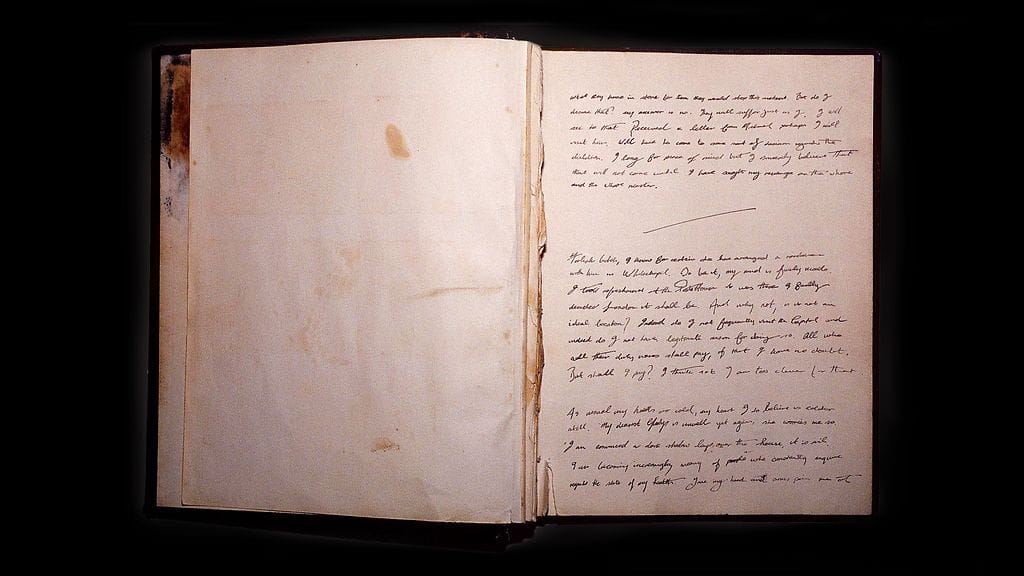 what they have in store for them they would stop this instant. But do I
desire that? my answer is no. They will suffer just as I. I will
see to that. Received a letter from Michael perhaps I will
visit him. Will have to come to some sort of decision regards the
children. I long for peace of mind but I sincerely believe that
that will not come until I have sought my revenge on the whore
and the whore master.
Foolish bitch, I know for certain she has arranged a rendezvous
with him in Whitechapel. So be it, my mind is firmly made.
I took refreshment at the Poste House it was there I finally
decided London it shall be. And why not, is it not an
ideal location? Indeed do I not frequently visit the Capital and
indeed do I not have legitimate reason for doing so. All who
sell their dirty wares shall pay, of that I have no doubt.
But shall I pay? I think not I am too clever for that.
As usual my hands are cold, my heart I do believe is colder
still. My dearest Gladys is unwell yet again, she worries me so.
I am convinced a dark shadow lays over the house, it is evil.
I am becoming increasingly weary of people who constantly enquire
regards the state of my health. True my head and arms pain me at